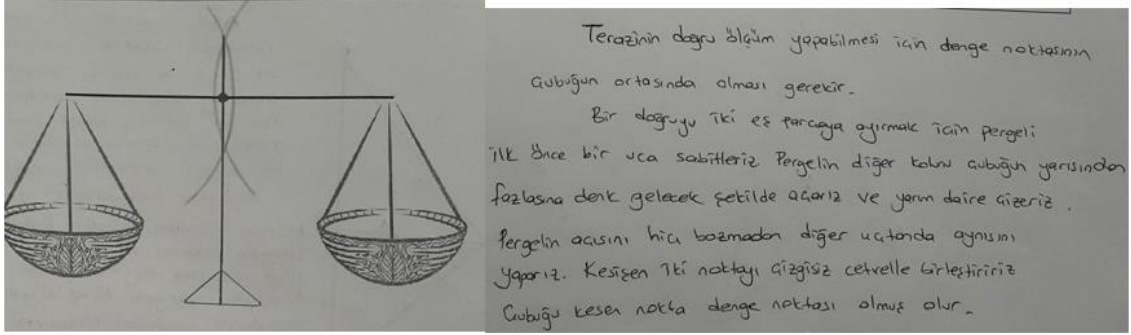 Terazinin doğru ölçüm yapabilmesi için denge noktasının
çubuğun ortasında olması gerekir.
Bir doğruyu iki eş parçaya ayırmak için pergeli
ilk önce bir uca sabitleriz. Pergelin diğer kolunu çubuğun yarısından
fazlasına denk gelecek şekilde açarız ve yarım daire çizeriz.
Pergelin açısını hiç bozmadan diğer uçtanda aynısını
yaparız. Kesişen iki noktayı çizgisiz cetvelle birleştiririz
Çubuğu kesen nokta denge noktası olmuş olur.